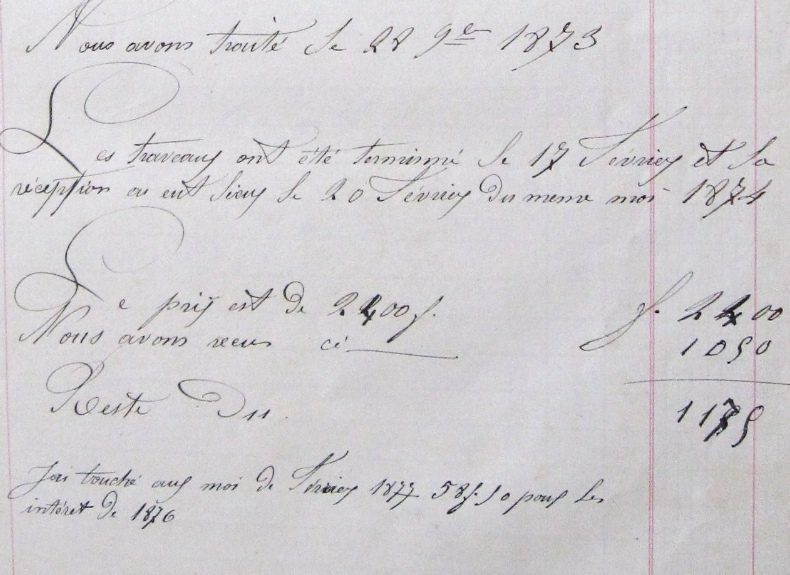 Nous avons traité le 28 9bre 1873
Les travaux ont été terminné le 17 Février et la
réception a eut lieux le 20 Février du meme moi 1874
Le prix est de 2400 f. f. 2400
Nous avons recus ci 1050
Reste Du 1175
Jai touché aux moi de Février 1877 58f. 50 pour les
intéret de 1876